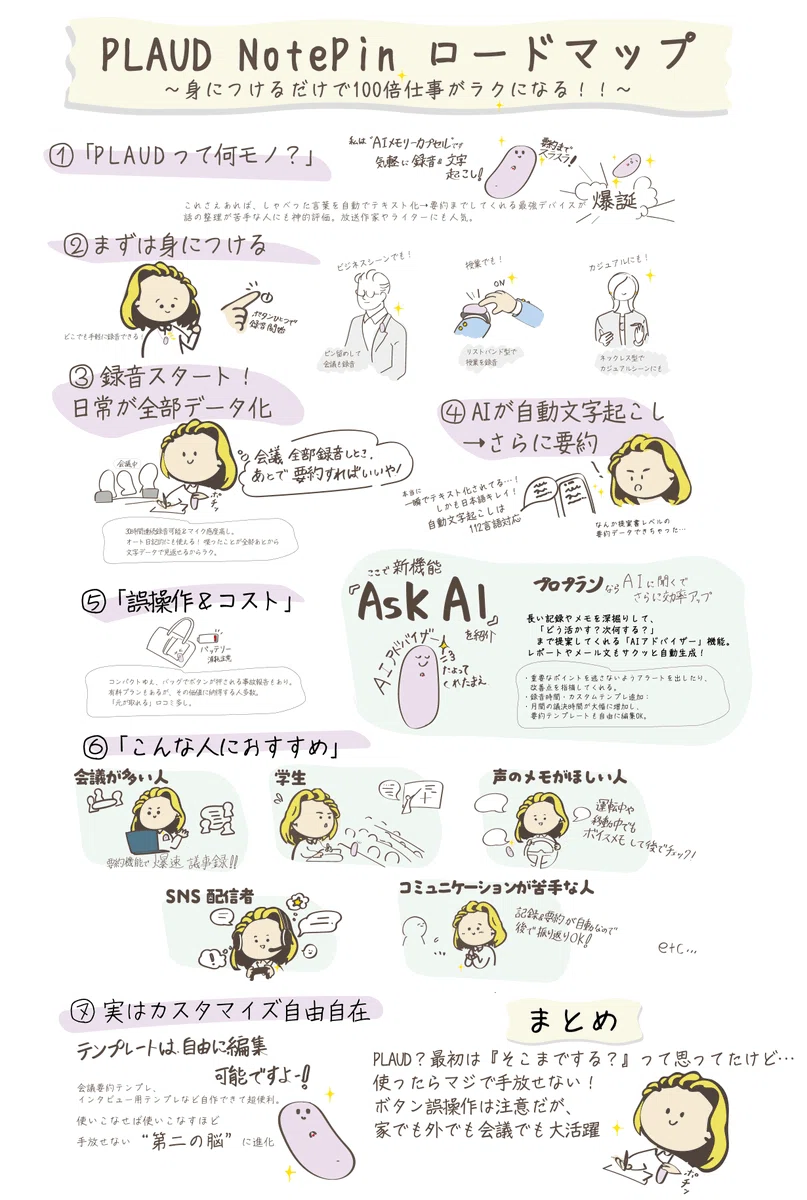 PLAUD NotePin ロードマップ
～身につけるだけで100倍仕事がラクになる！！～
①「PLAUDって何モノ？」
私は"AIメモリーカプセル"です
気軽に録音&文字
起こし!
要約まで
スラスラ!
爆誕
これさえあれば、しゃべった言葉を自動でテキスト化→要約までしてくれる最強デバイスが
話の整理が苦手な人にも神的評価。放送作家やライターにも人気。
②まずは身につける
どこでも手軽に録音できる！
ボタンひとつで
録音開始
ビジネスシーンでも！
ピン留めして
会議も録音
授業でも！
ON
リストバンド型で
授業を録音
カジュアルにも！
ネックレス型で
カジュアルシーンにも
③録音スタート！
日常が全部データ化
会議中
ポチッ
会議 全部録音しとき、
あとで 要約すればいいや!
30時間連続録音可能&マイク感度高し。
オート日記的にも使える！ 喋ったことが全部あとから
文字データで見返せるからラク。
④AIが自動文字起こし
→さらに要約
本当に
一瞬でテキスト化されてる…！
しかも日本語キレイ！
自動文字起こしは
112言語対応
なんか提案書レベルの
要約データできちゃった…
⑤「誤操作&コスト」
バッテリー
消耗注意
コンパクトゆえ、バッグでボタンが押される事故報告もあり。
有料プランもあるが、その価値に納得する人多数。
「元が取れる」口コミ多し。
ここで 新機能
『Ask AI』
を紹介
AIアドバイザー
たよって
くれたまえ
プロプランなら AIに聞くで
さらに効率アップ
長い記録やメモを深掘りして、
「どう活かす？次何する？」
まで提案してくれる「AIアドバイザー」機能。
レポートやメール文もサクッと自動生成！
・重要なポイントを逃さないようアラートを出したり、
改善点を指摘してくれる。
・録音時間・カスタムテンプレ追加：
・月間の議決時間が大幅に増加し、
要約テンプレートも自由に編集OK。
⑥「こんな人におすすめ」
会議が多い人
要約機能で 爆速 議事録!!
学生
声のメモがほしい人
運転中や
移動中でも
ボイスメモ して後でチェック!
SNS 配信者
コミュニケーションが苦手な人
記録&要約が自動なので
後で振り返りOK!
etc...
⑦実はカスタマイズ自由自在
テンプレートは 自由に編集
可能ですよー!
会議要約テンプレ、
インタビュー用テンプレなど自作できて超便利。
使いこなせば使いこなすほど
手放せない "第二の脳" に進化
まとめ
PLAUD？最初は『そこまでする？』って思ってたけど…
使ったらマジで手放せない！
ボタン誤操作は注意だが、
家でも外でも会議でも大活躍
ポチッ